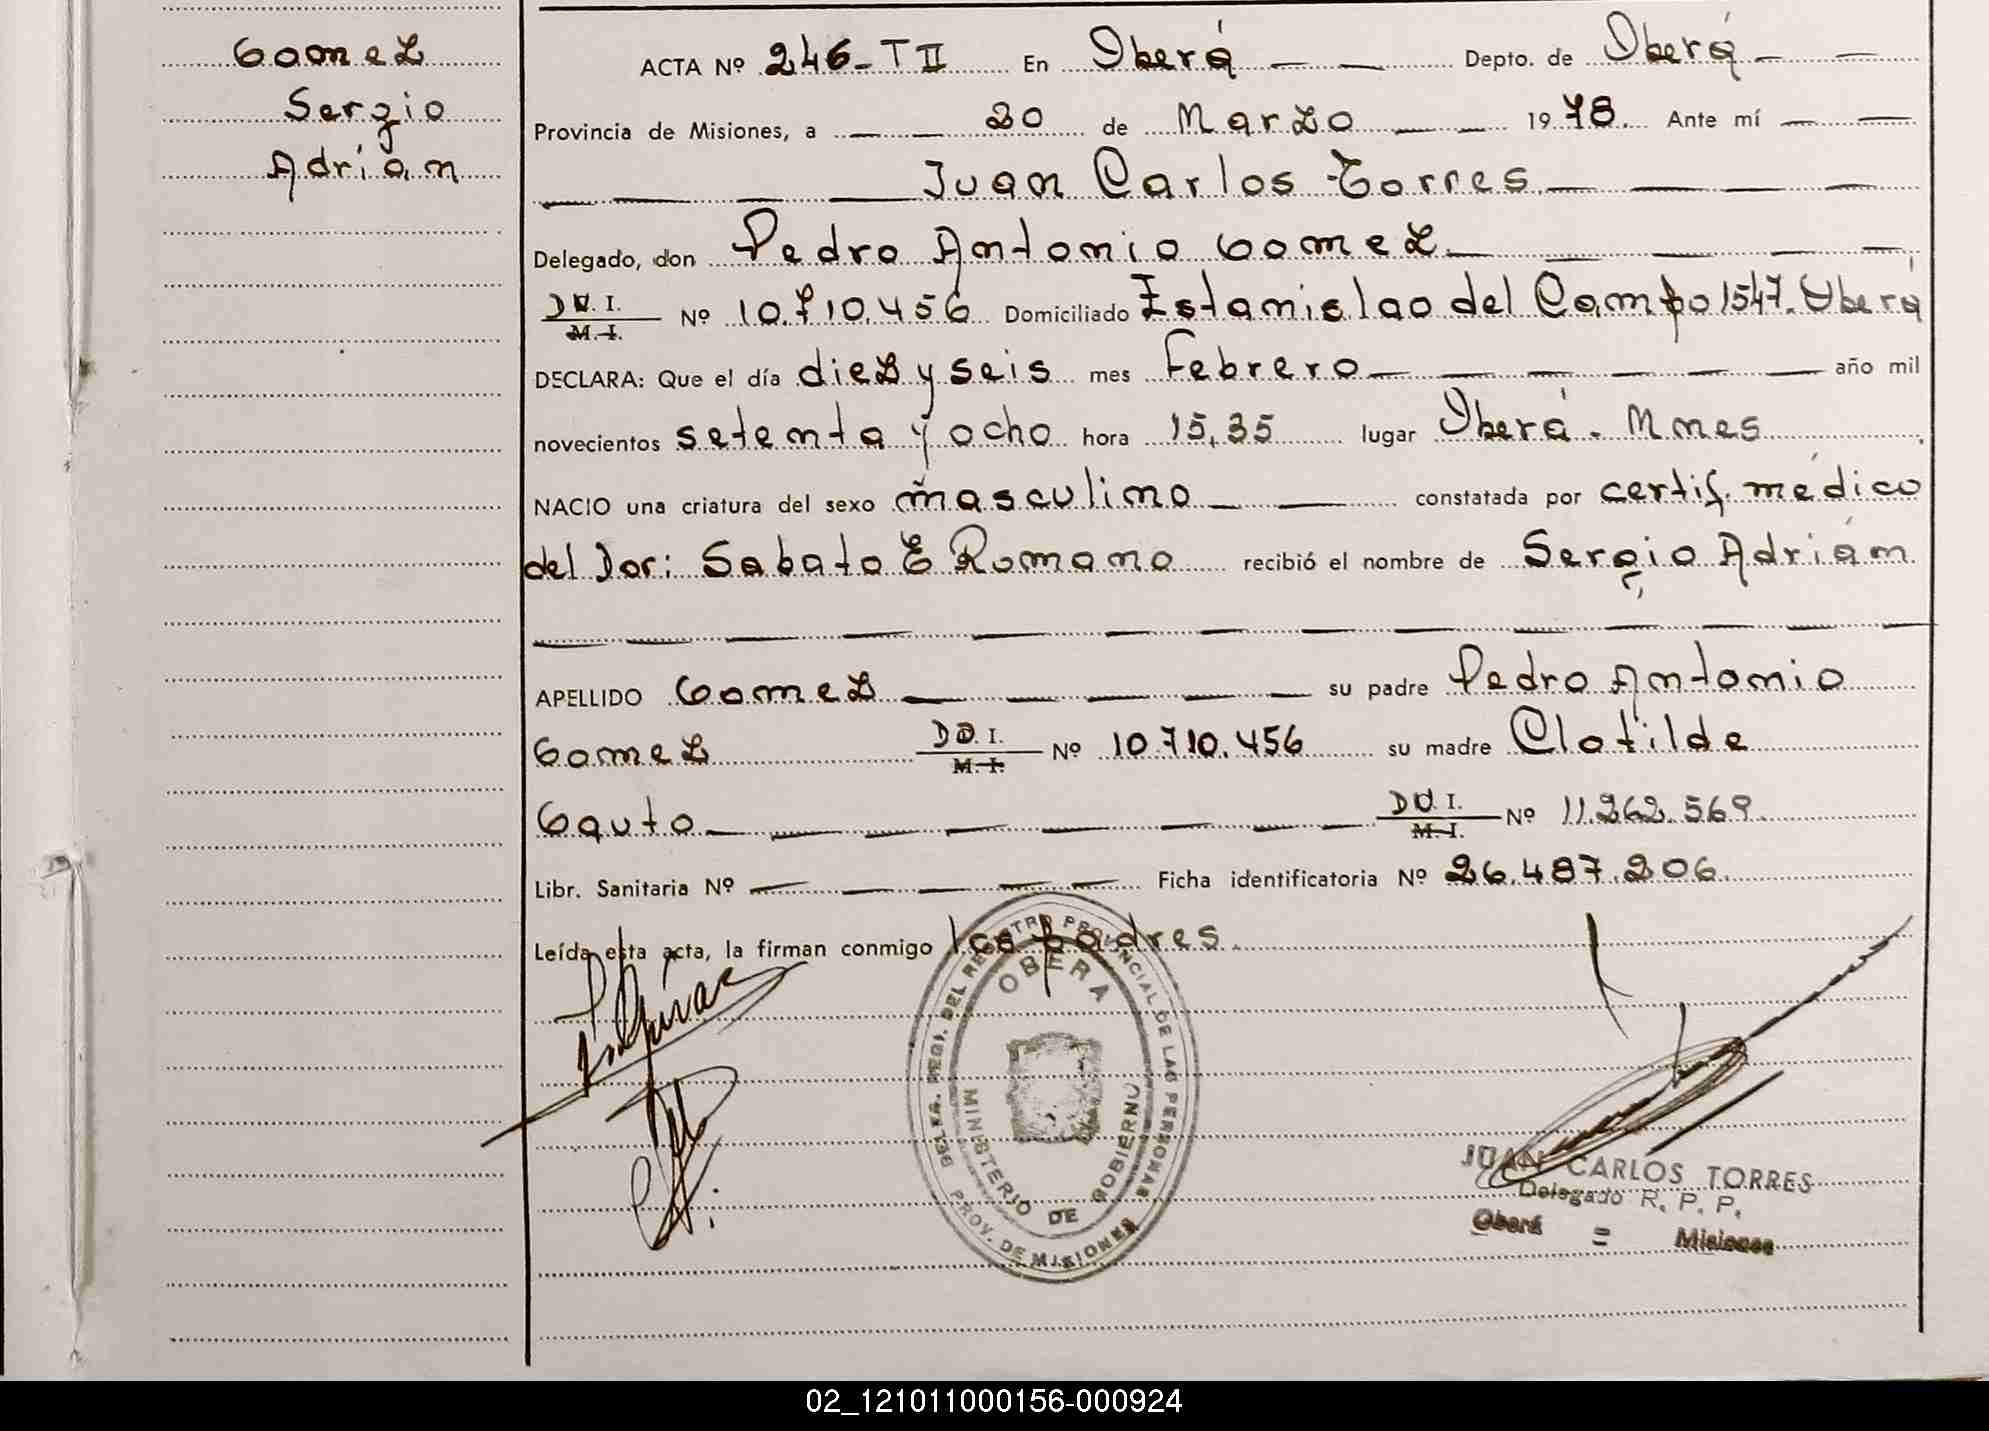 Gomez
Sergio
Adrián
ACTA Nº 246-T II En Oberá Depto. de Oberá
Provincia de Misiones, a 20 de Marzo 1978. Ante mí
Juan Carlos Torres
Delegado, don Pedro Antonio Gomez
D.U.I.
M.I. Nº 10.710.456 Domiciliado Estanislao del Campo 1547. Oberá
DECLARA: Que el día diez y seis mes Febrero año mil
novecientos setenta y ocho hora 15,35 lugar Oberá. Mnes
NACIO una criatura del sexo masculino constatada por certif. médico
del Dor: Sabato E Romano recibió el nombre de Sergio Adrián
APELLIDO Gomez su padre Pedro Antonio
Gomez D.U.I.
M.I. Nº 10.710.456 su madre Clotilde
Gauto D.U.I.
M.I. Nº 11.262.569.
Libr. Sanitaria Nº Ficha identificatoria Nº 26.487.206.
Leída esta acta, la firman conmigo los padres.
DEL REGISTRO PROVINCIAL DE LAS PERSONAS
OBERA
MINISTERIO DE GOBIERNO
PROV. DE MISIONES
JUAN CARLOS TORRES
Delegado R. P. P.
Oberá = Misiones
02_121011000156-000924